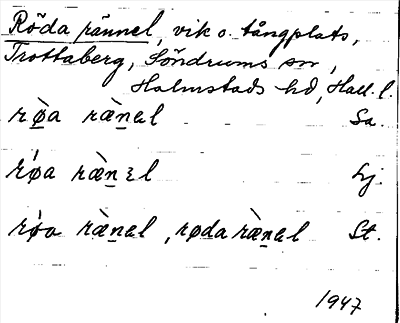 Röda rännel, vik o. tångplats,
Trottaberg, Söndrums sn,
Halmstads hd, Hall. l.
rø̀a ræ̀nɛl Sa.
ŕøa ræ̀nɛl Lj.
rǿa ræ̀nɛl, røda ræ̀nɛl St.
1947